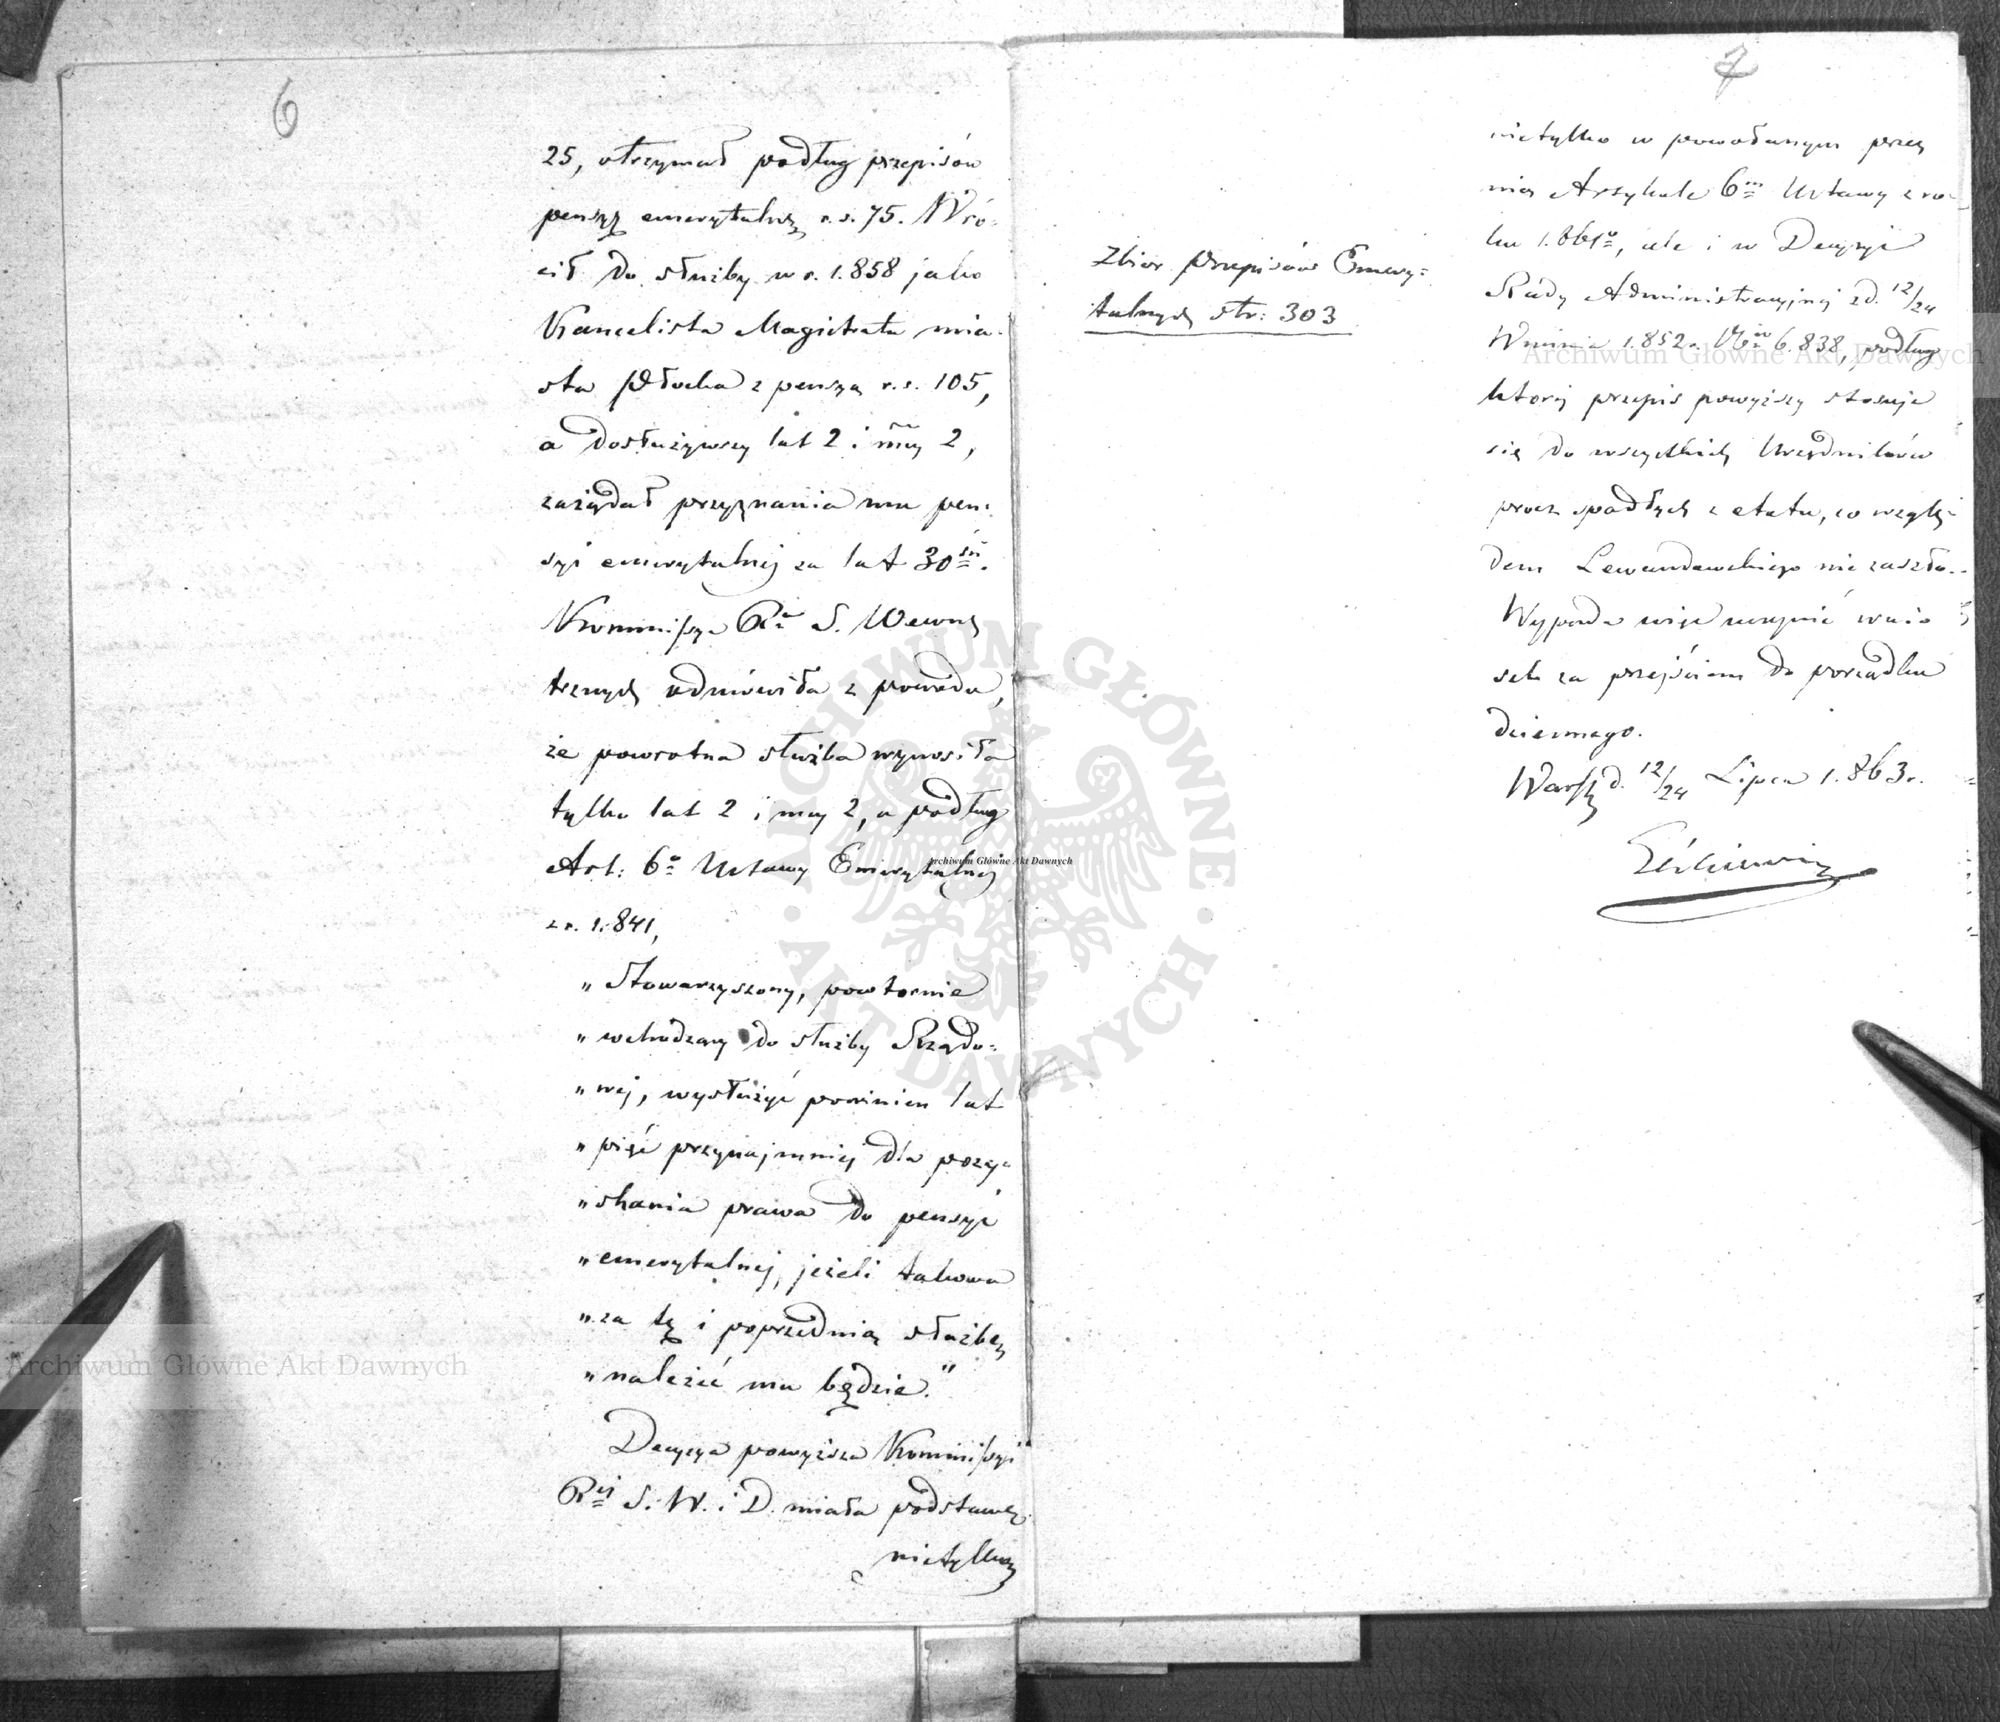 6
25, otrzymał podług przepisów
pensyę emerytalną r.s. 75. Wró-
cił do służby w r. 1.858 jako
Kancelista Magistratu mia-
sta Płocka z pensyą r.s. 105,
a dosłużywszy lat 2 i mcy 2,
zażądał przyznania mu pen-
syi emerytalnej za lat 30ści.
Kommissya Ra S. Wewnę
trznych odmówiła z powodu,
że powrotna służba wynosiła
tylko lat 2 i mcy 2, a podług
Art: 6o Ustawy Emerytalnej
z r. 1.841,
„Stowarzyszony, powtornie
„wchodzący do służby Rządo-
„wej, wysłużyć powinien lat
„pięć przynajmniej dla pozy-
„skania prawa do pensyi
„emerytalnej, jeżeli takowa
„za tę i poprzednią służbę
„należéć mu będzie."
Decyzya powyższa Kommissyi
Rej S. W. i D. miała podstawę
nietylko
7
Zbior Przepisów Emery-
talnych str: 303
nietylko w powołanym przez
nią Artykule 6m Ustawy z ro-
ku 1.841o, ale i w Decyzyi
Rady Administracyjnej z d. 12/24
Września 1.852 r. No 6.838, podług
ktorej przepis powyższy stosuje
się do wszystkich Urzędników
procz spadłych z etatu, co wzglę-
dem Lewandowskiego nie zaszło.
Wypada więc uczynić wnio
sek za przejściem do porządku
dziennego.
Warsz d. 12/24 Lipca 1.863 r.
Archiwum Główne Akt Dawnych
Archiwum Główne Akt Dawnych
Archiwum Główne Akt Dawnych
ARCHIWUM GŁÓWNE AKT DAWNYCH